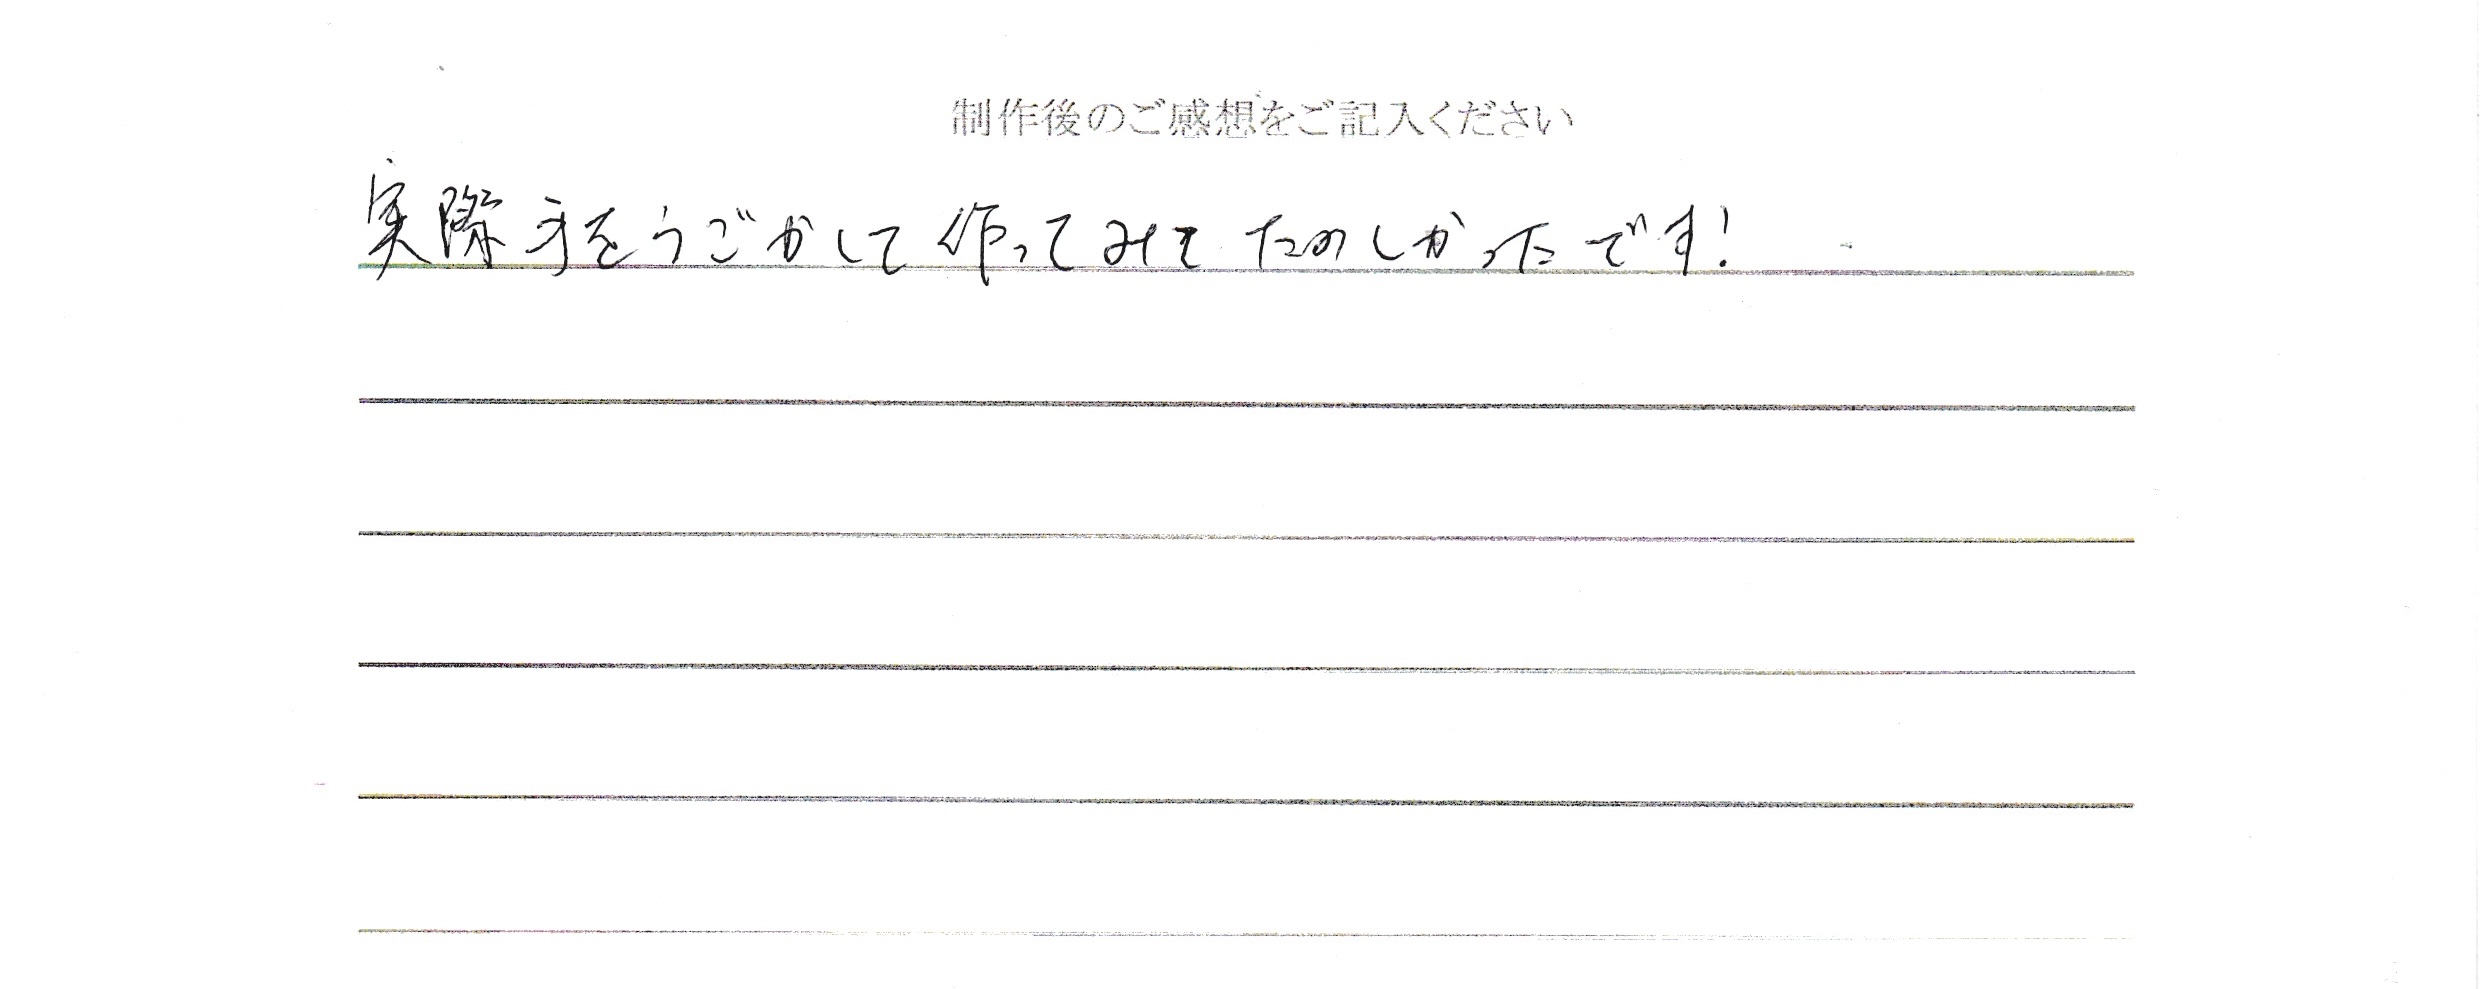 制作後のご感想をご記入ください
実際手をうごかして作ってみてたのしかったです!